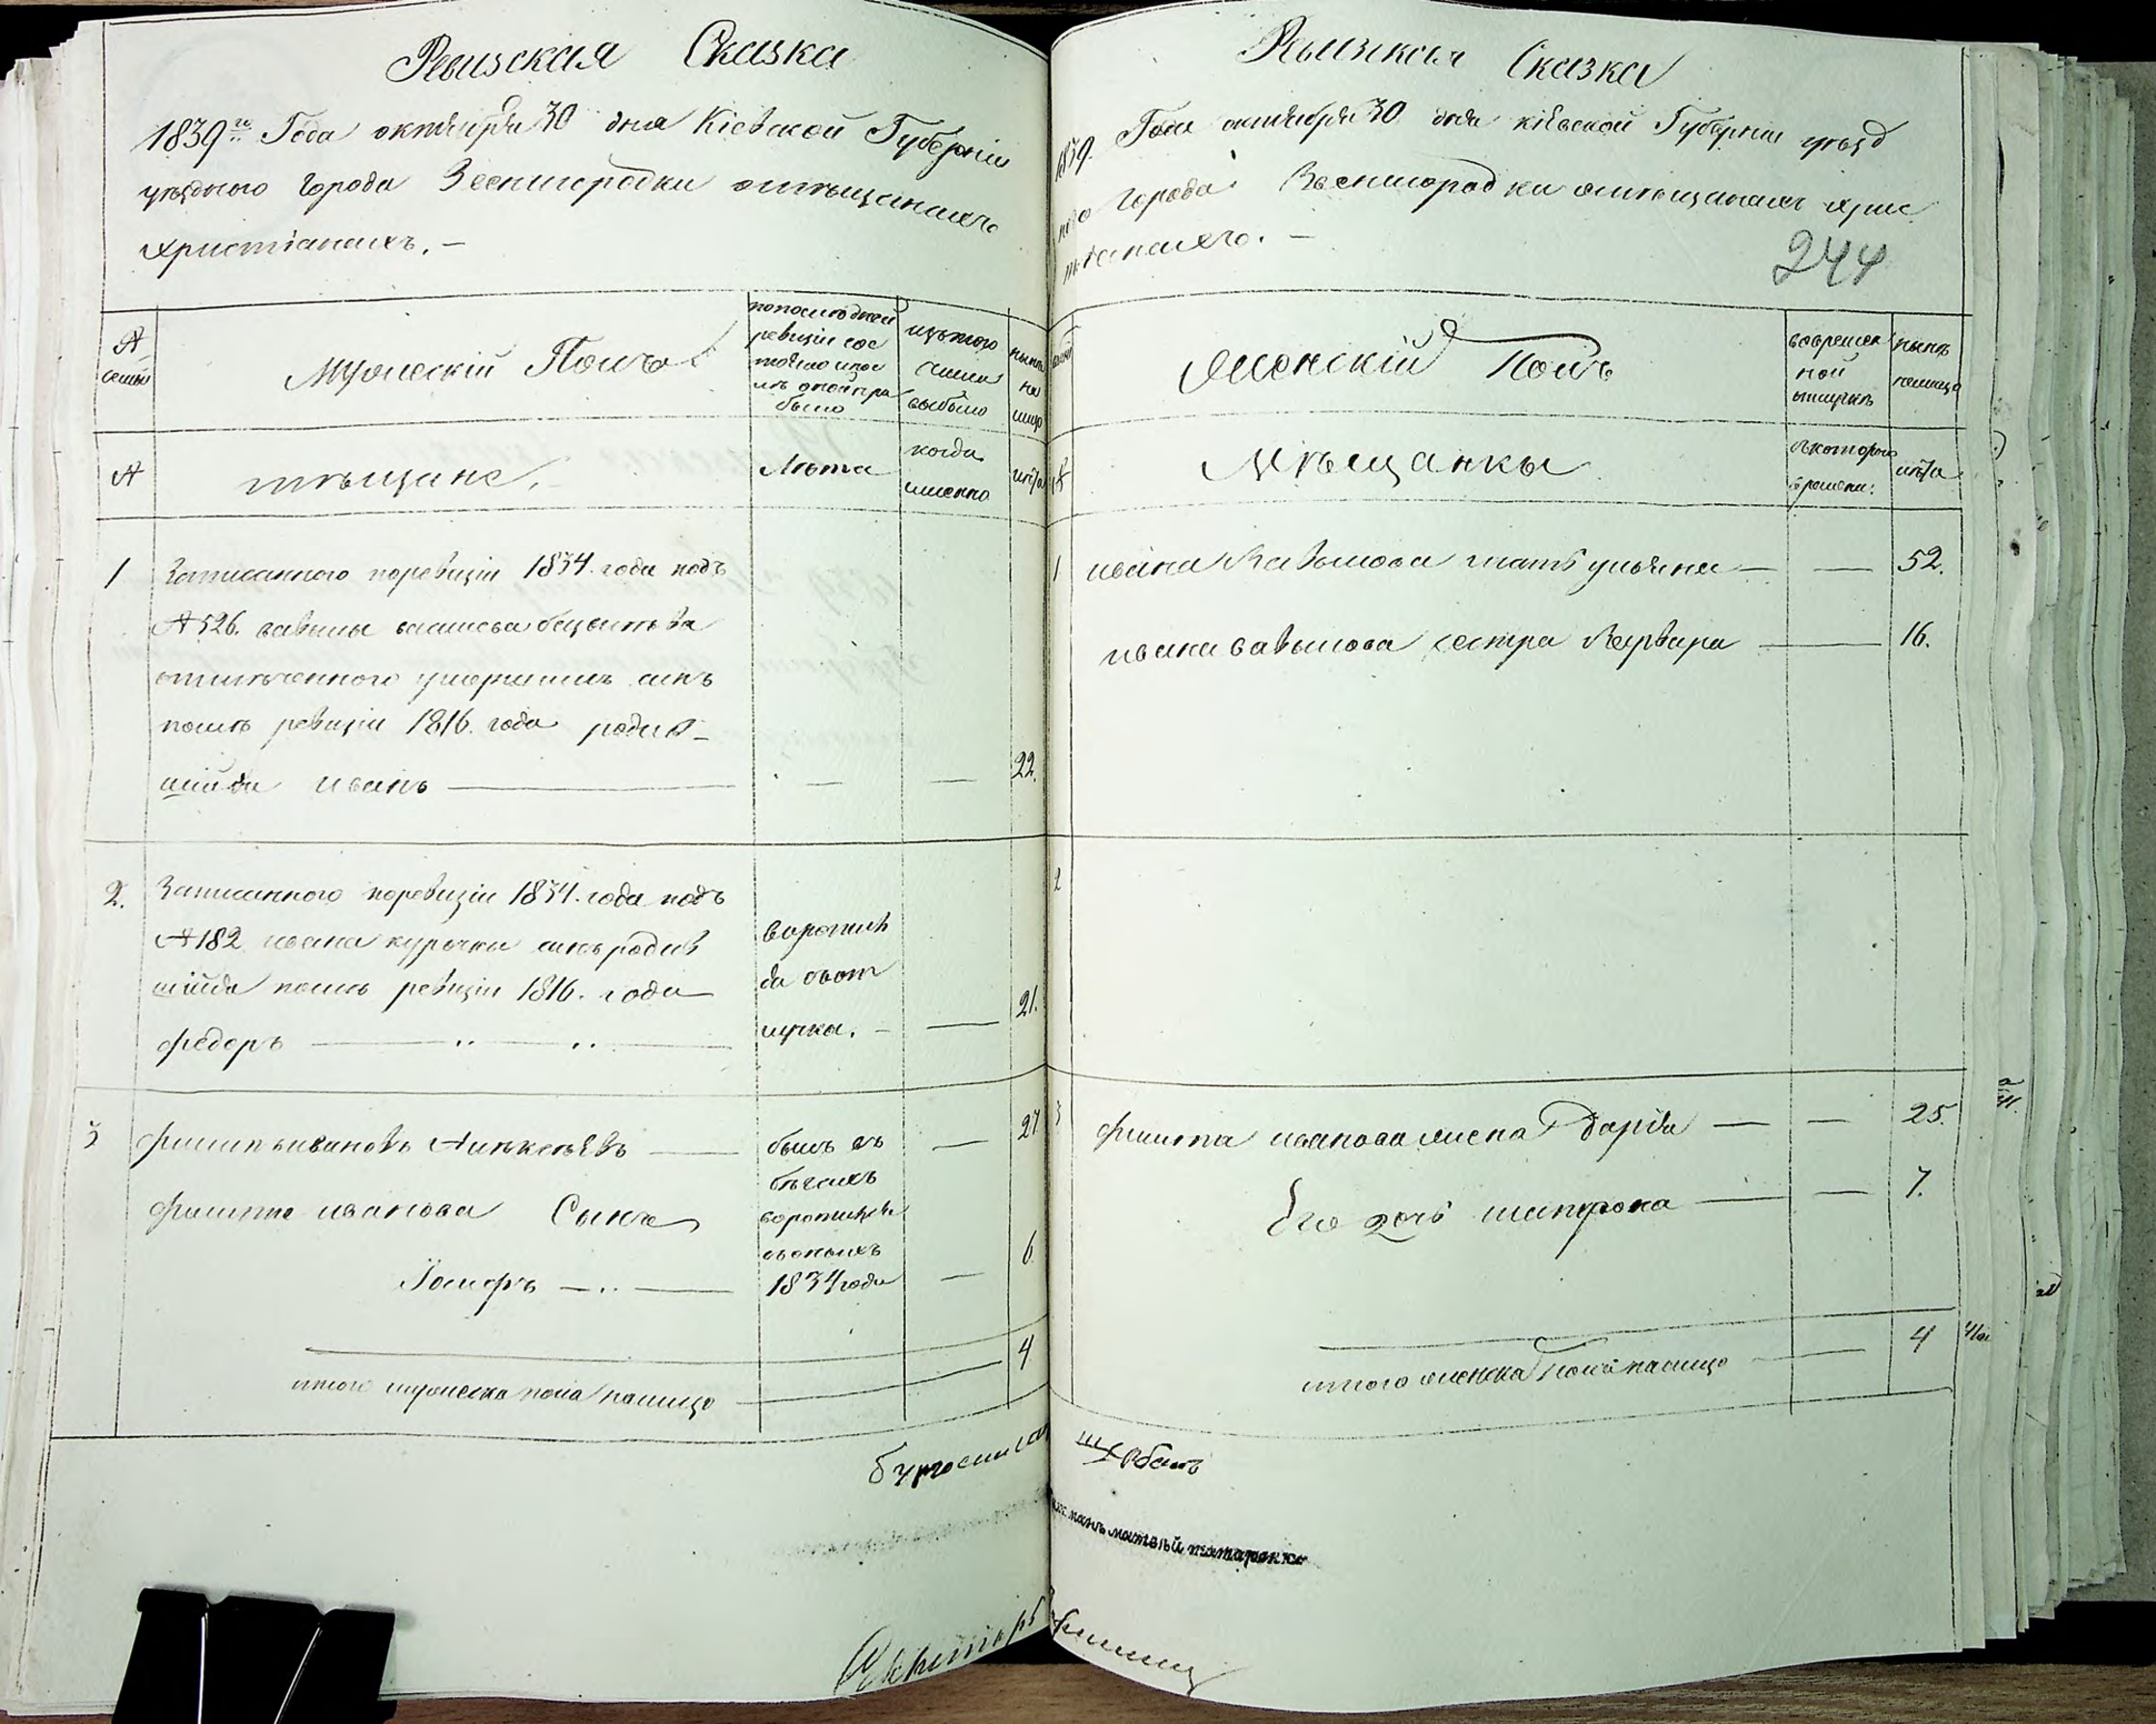 Ревизская Сказка
1839го Года октября 30 дня Кіевской Губерніи
уѣзднаго города Звенигородки омѣщанахъ
христіанахъ. —
№ семьи
Мужескій Полъ
попослѣдней ревизіи состояло ипослѣ онойприбыло
изътого числа выбыло
нынѣ на лицо
№
мѣщане.
Лѣта
когда именно
лѣта
1
Записанного поревизіи 1834. года подъ
№ 526. савыны
отмѣченного умершимъ сынъ
послѣ ревизіи 1816. года родив-
шійся иванъ — — — 22.
2.
Записанного поревизіи 1834. года подъ
№ 182 ивана курочки сынъродив
шійся послѣ ревизіи 1816. года
федоръ — 21.
воротил
ся съот
лучка. —
3
филипъивановъ — 27
былъ въ
бѣгахъ
филипа иванова Сынъ
воротился
съоныхъ
Іосифъ — 1834 года — 6
итого мужеска пола налицо — 4
Ревизкая Сказка
1839. Года октября 30 дня кіевской Губерніи уѣзд
наго города Звенигородки омѣщанахъ хрис
тіанахъ. —
244
Женскій Полъ
вовремен
ной
отлучкѣ
нынѣ
налицо
№
Мѣщанкы
съкоторого
времени:
лѣта
1
ивана Савынова мать ульяна — — 52.
ивана савынова сестра Варвара — 16.
2
3
филипа иванова жена Дарія — — 25.
Его дочь матрона — — 7.
итого женска пола налицо — 4
бургомистръ
Щербань
матвѣй татаренко
Секретарь